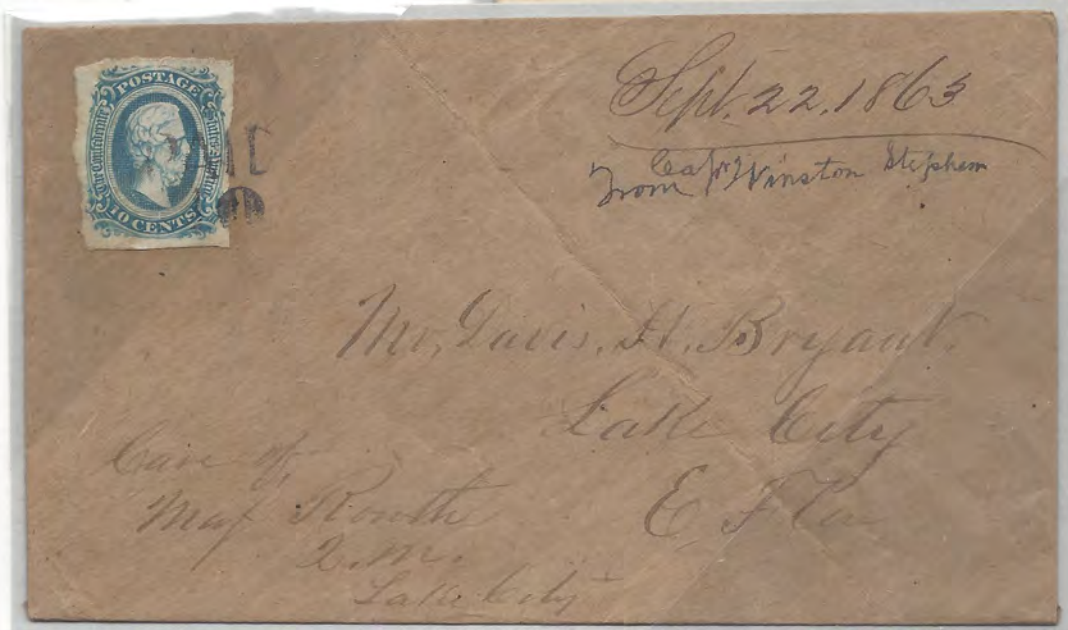 POSTAGE
The Confederate States of America
10 CENTS
PAID
10
Sept. 22. 1863
From Capt Winston Stephens
Mr. Davis. H. Bryant.
Lake City
E Fla
Care of,
Maj Routh
Q.M.
Lake City